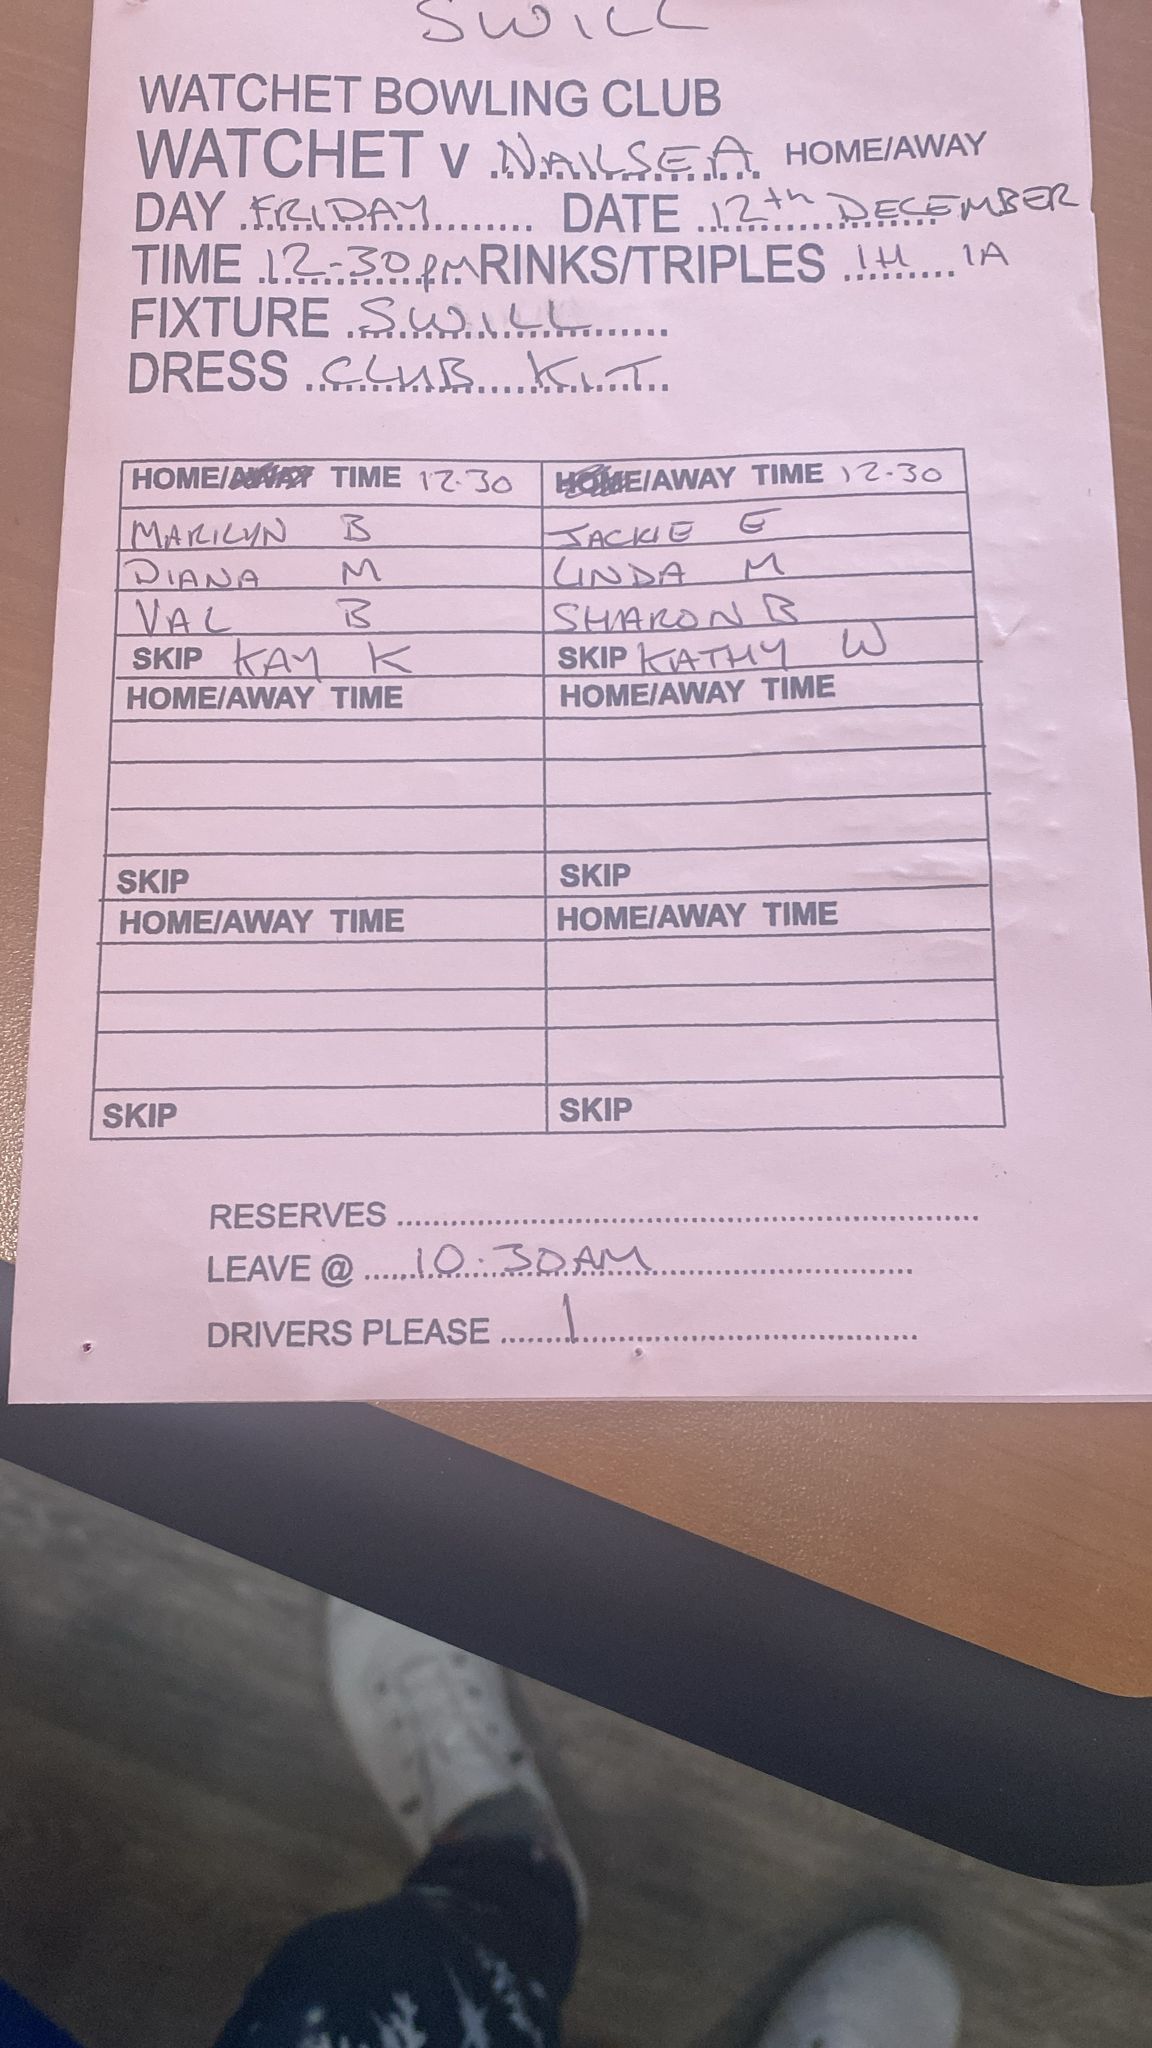 SWILL
WATCHET BOWLING CLUB
WATCHET v NAILSEA HOME/AWAY
DAY FRIDAY DATE 12th DECEMBER
TIME 12-30pm RINKS/TRIPLES 1H 1A
FIXTURE SWILL
DRESS CLUB KIT
HOME/AWAY TIME 12.30 HOME/AWAY TIME 12-30
MARILYN B JACKIE E
DIANA M LINDA M
VAL B SHARON B
SKIP KAY K SKIP KATHY W
HOME/AWAY TIME HOME/AWAY TIME
SKIP SKIP
HOME/AWAY TIME HOME/AWAY TIME
SKIP SKIP
RESERVES
LEAVE @ 10.30AM
DRIVERS PLEASE 1